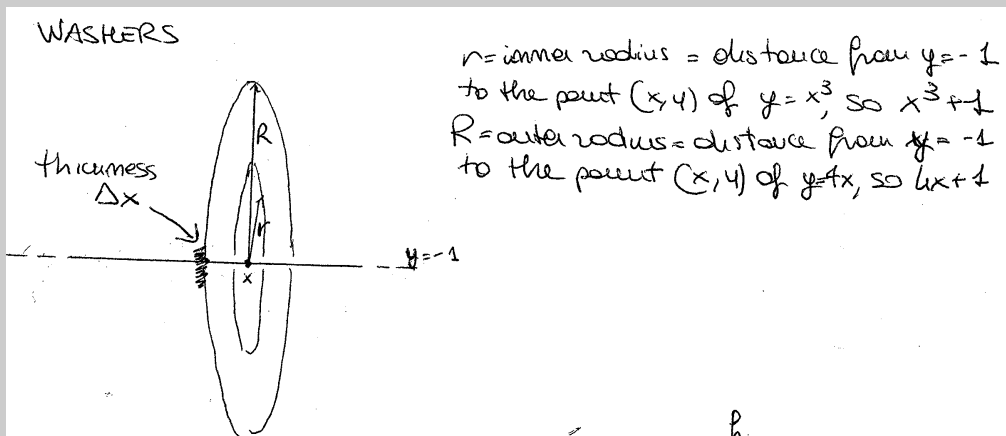 WASHERS
r = inner radius = distance from y = -1
to the point (x, y) of y = x³, so x³ + 1
R = outer radius = distance from y = -1
to the point (x, y) of y = 4x, so 4x + 1
thickness
Δx
R
r
x
y = -1